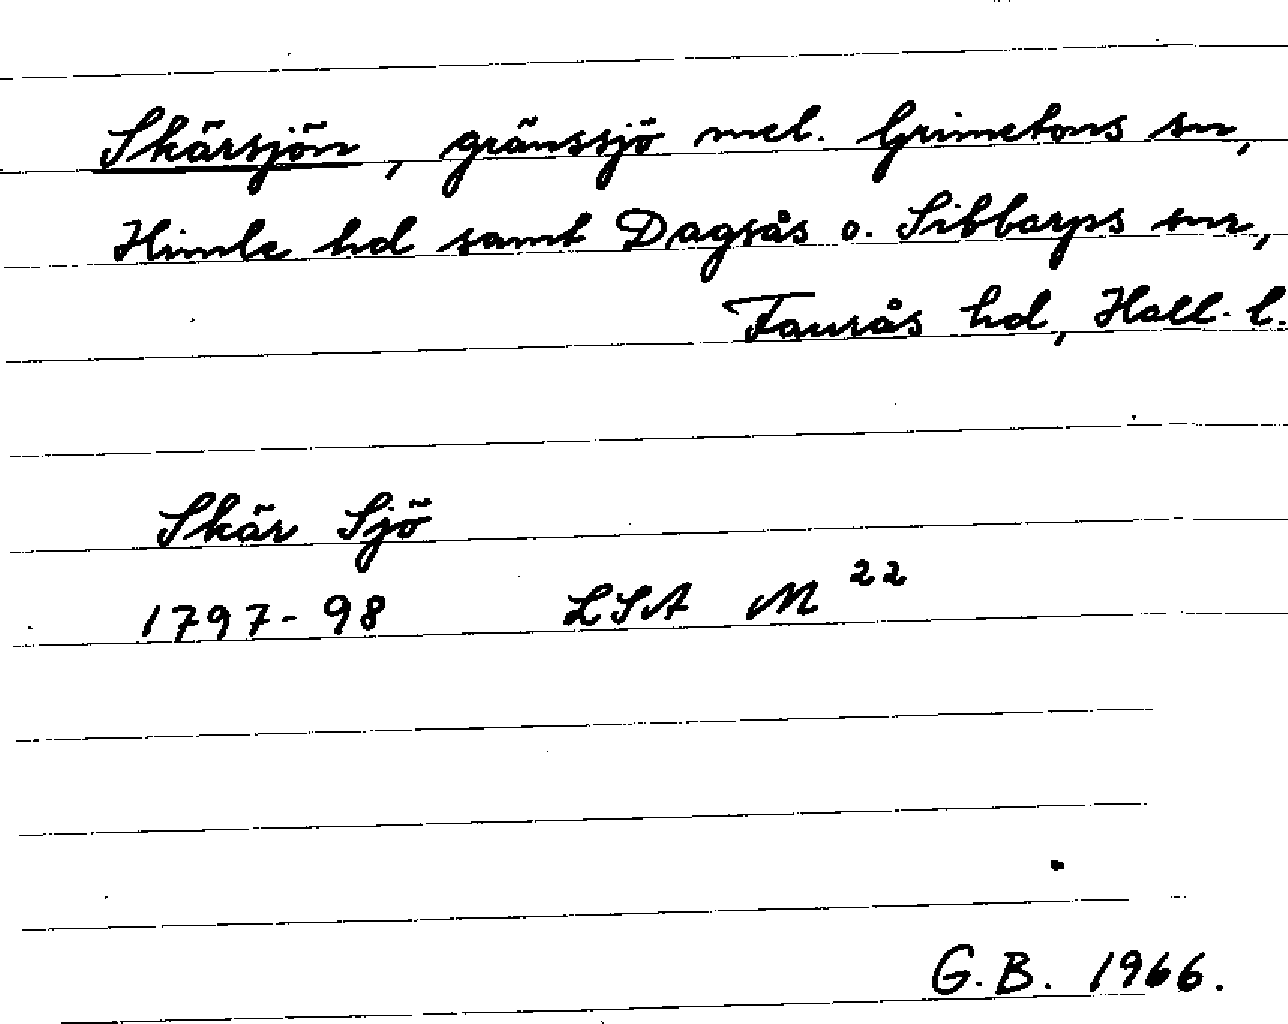 Skärsjön, gränssjö mel. Grimetons sn,
Himle hd samt Dagsås o. Sibbarps snr,
Faurås hd, Hall. l.
Skär Sjö
1797-98 LSA M 22
G.B. 1966.